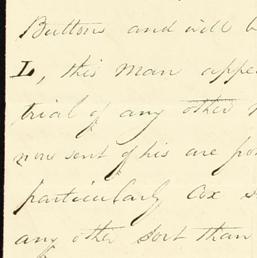 Buttons and will b
L, this man appe
trial of any other
now sent of his are po
particularly Cox s
any other sort than